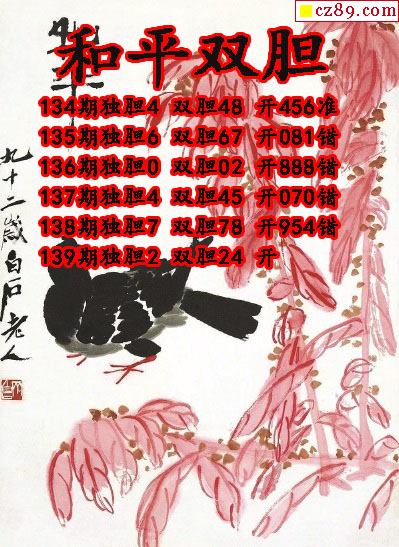 cz89.com
和平双胆
134期独胆4 双胆48 开456准
135期独胆6 双胆67 开081错
136期独胆0 双胆02 开888错
137期独胆4 双胆45 开070错
138期独胆7 双胆78 开954错
139期独胆2 双胆24 开
九十二岁白石老人